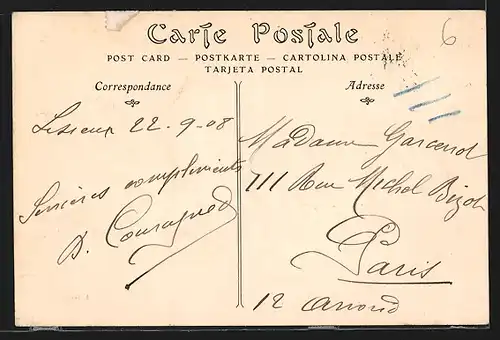 Carte Postale
POST CARD — POSTKARTE — CARTOLINA POSTALE
TARJETA POSTAL
6
Correspondance
Adresse
Lisieux 22-9-08
Sincères compliments
Madame
111 Rue Michel Bizot
Paris
12 arrond